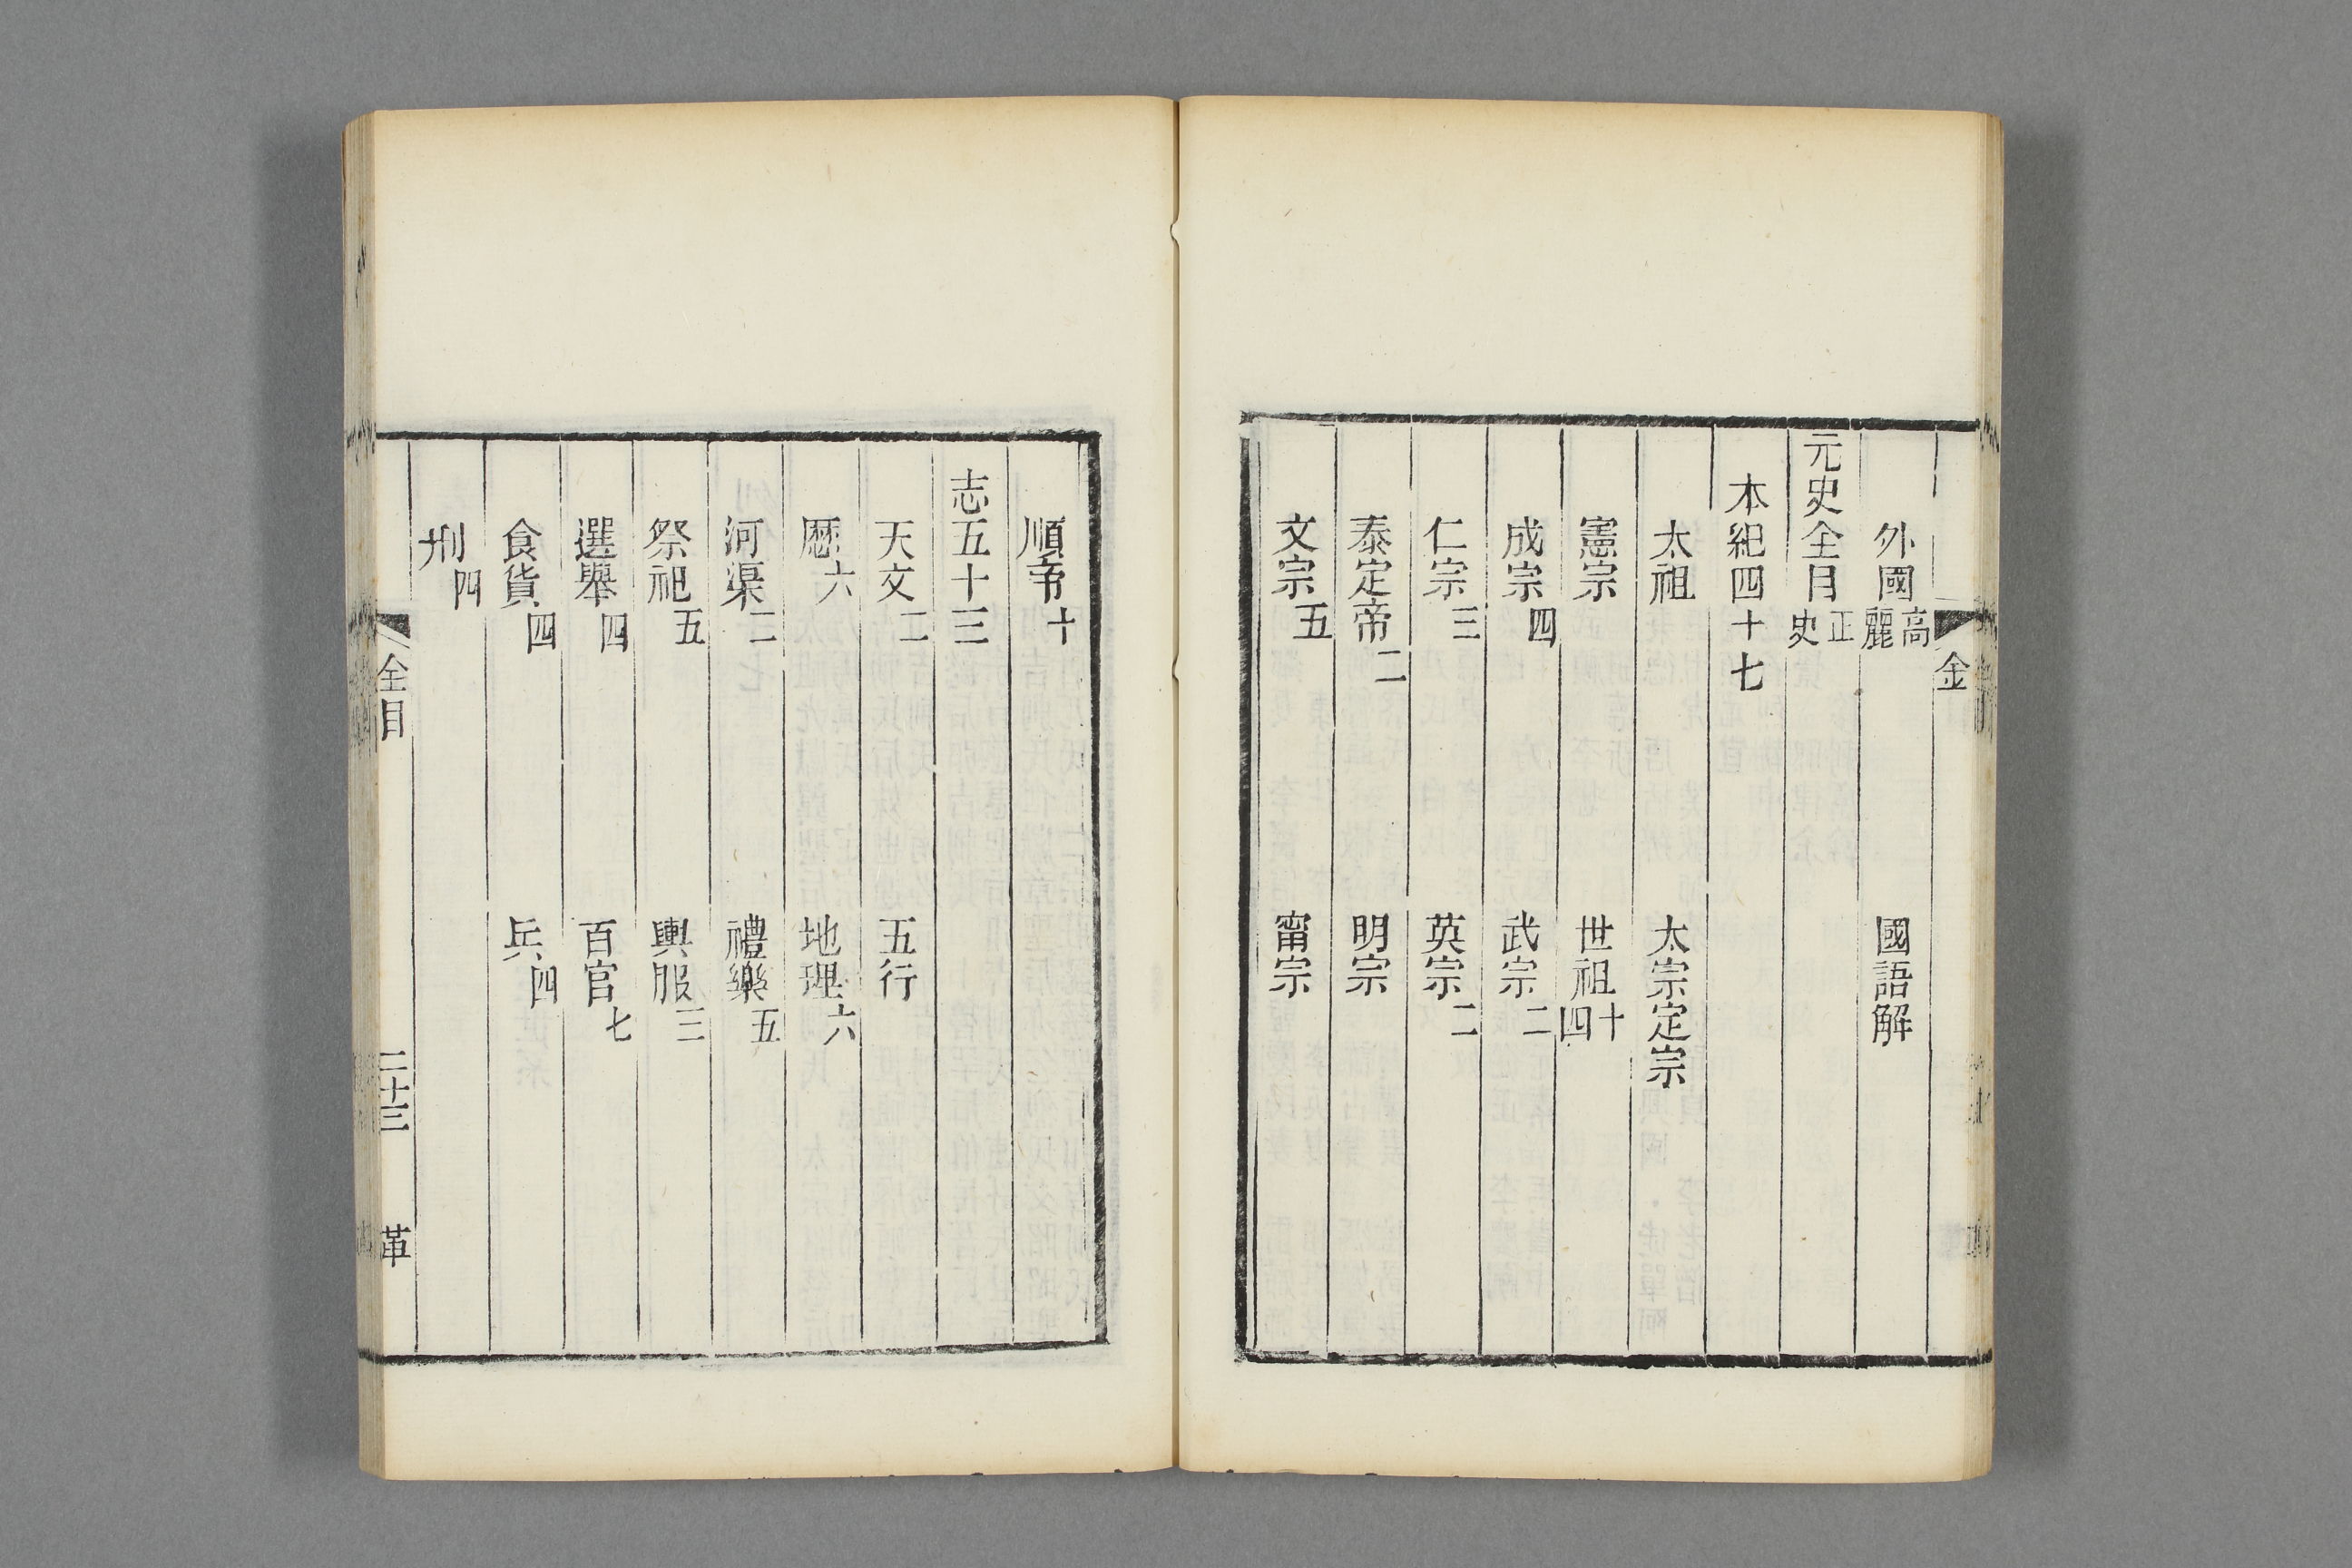 金
外國高麗 國語解
元史全目正史
本紀四十七
太祖 太宗定宗
憲宗 世祖十四
成宗四 武宗二
仁宗三 英宗二
泰定帝二 明宗
文宗五 甯宗
順帝十
志五十三
天文二 五行
厯六 地理六
河渠二 禮樂五
祭祀五 輿服三
選舉四 百官七
食貨四 兵四
刑四
全目 二十三 革